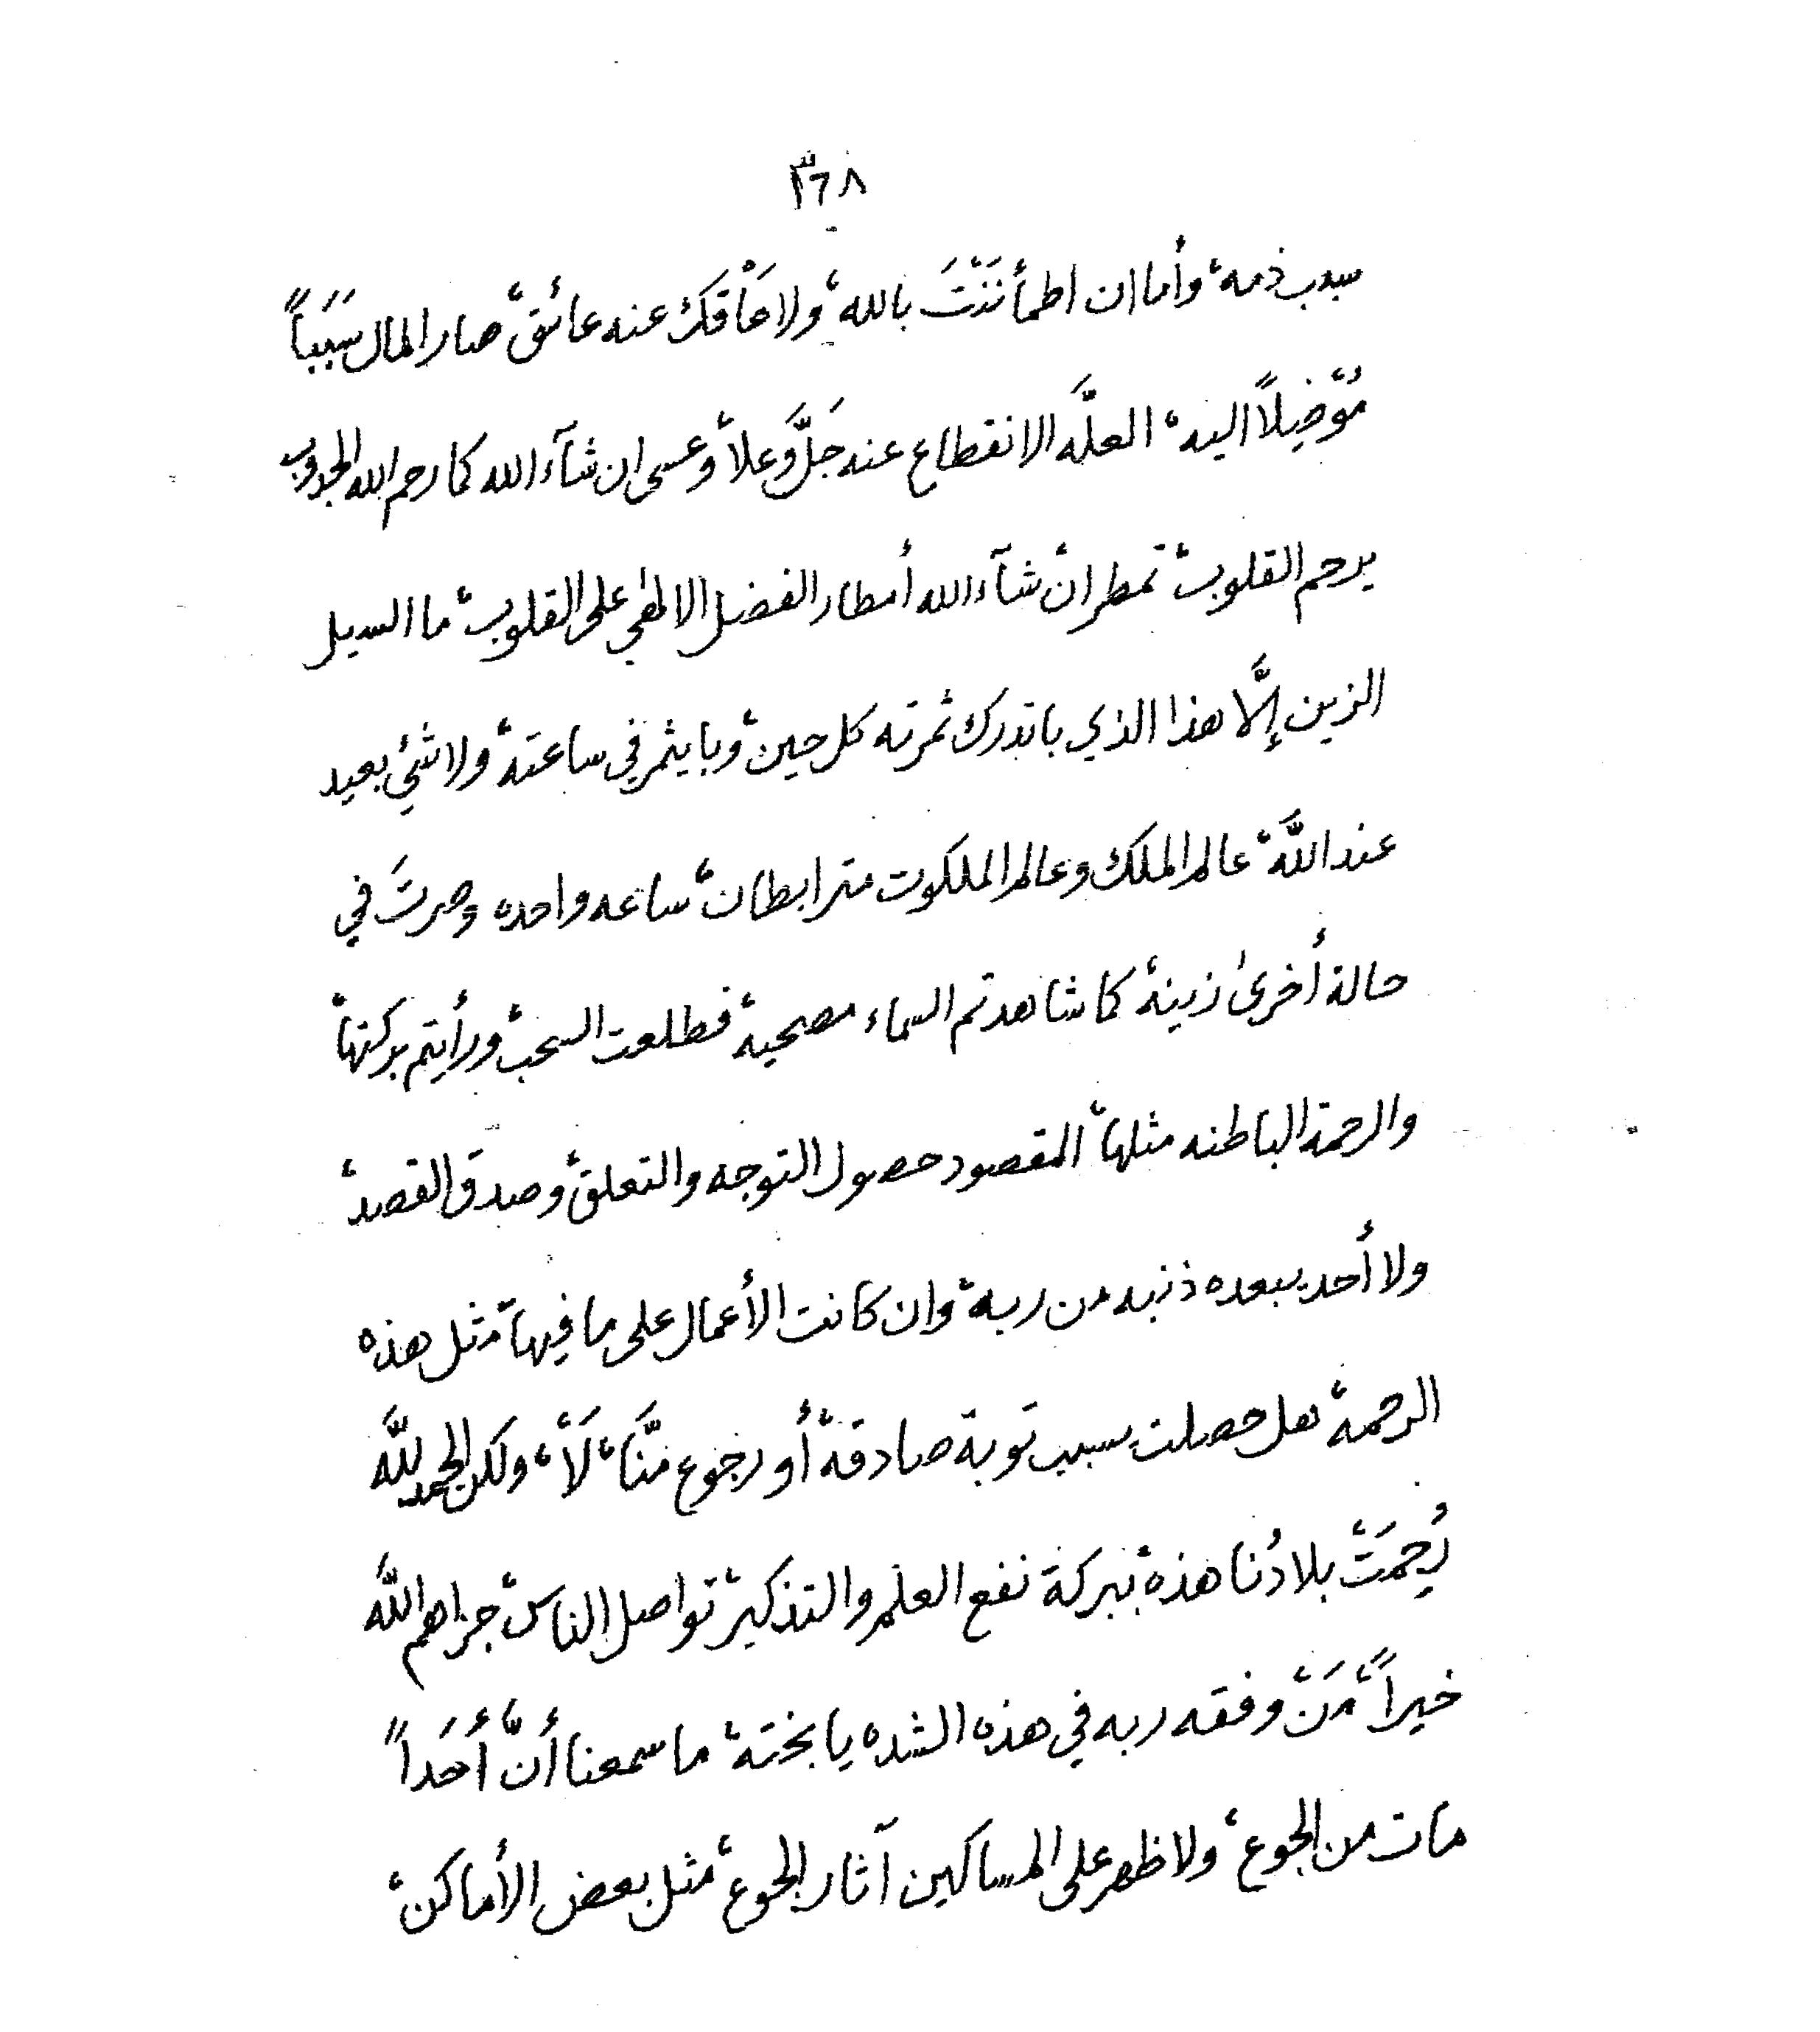 ٣٦٨
سبب ذمه، وأما ان اطمأنَنْتَ بالله، ولا عَاْقَكَ عنه عائق، صار المال سَبَباً
مُوْصِلاً اليه، العلَّه الانقطاع عنه جَلَّ وعلا، وعسى ان شآء الله كما رحم الله الجدوب
يرحم القلوب، تمطر ان شآء الله أمطار الفضل الالهي على القلوب، ما السيل
الزين إلَّا هذا الذي باتدرك ثمرته كل حين، وبايثمر في ساعته، ولا شيء بعيد
عند اللَّه، عالم الملك وعالم الملكوت مترابطان، ساعه واحده وصرتَ في
حالة أخرى زينة، كما شاهدتم السماء مصحية، فطلعت السحب، ورأيتم بركتها،
والرحمة الباطنه مثلها، المقصود حصول التوجه والتعلق، وصدق القصد،
ولا أحد يبعده ذنبه من ربه، وان كانت الأعمال على ما فيها، مثل هذه
الرحمة، هل حصلت بسبب توبة صادقة، أو رجوع منَّا، لَاْ، ولكن الحمد للَّه
رُحِمَتْ بلادُنا هذه، ببركة نفع العلم والتذكير، تواصل الناس، جزاهم اللَّه
خيراً، مَنْ وفقه ربه في هذه الشده يا بخته، ما سمعنا أنَّ أَحَداً
مات من الجوع، ولا ظهر على المساكين آثار الجوع، مثل بعض الأماكن،